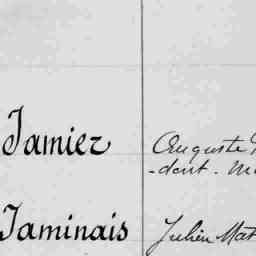 Jamier
Auguste
-dent. M
Jaminais
Julien Mat